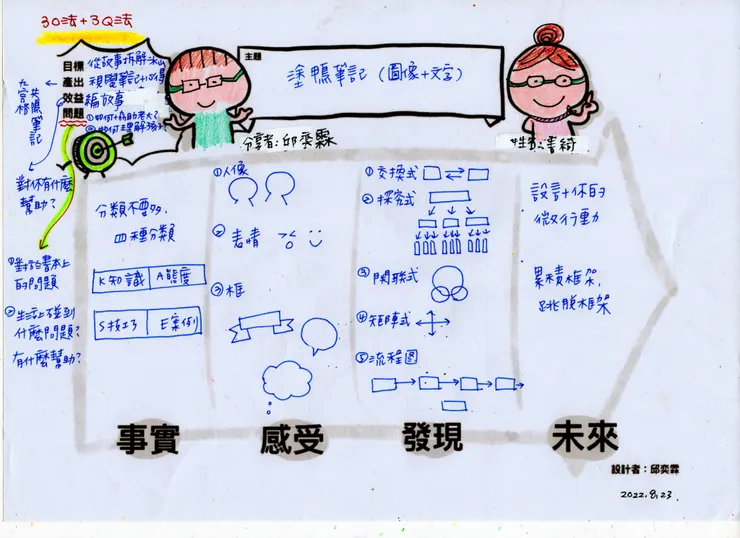 3O法+3Q法
目標 從故事拆解冰山
產出 視覺筆記+心得
效益 編故事
問題 ①如何+森助老大?
②如何理解孩子
九宮格
共振筆記
主題
塗鴨筆記(圖像+文字)
分享者:邱奕霖
對你有什麼
幫助?
①對咨書本上
的問題
②生活上碰到
什麼問題?
有什麼幫助?
分類不要多,
四種分類
K知識 A態度
S技巧 E案例
①人像
②表情
③框
①交換式
②探究式
③関聯式
④矩陣式
⑤流程図
設計你的
微行動
累積框架,
跳脫框架
事實 感受 發現 未來
設計者:邱奕霖
2022.8.23.